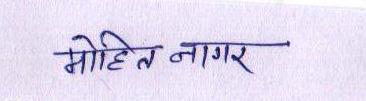 मोहित नागर